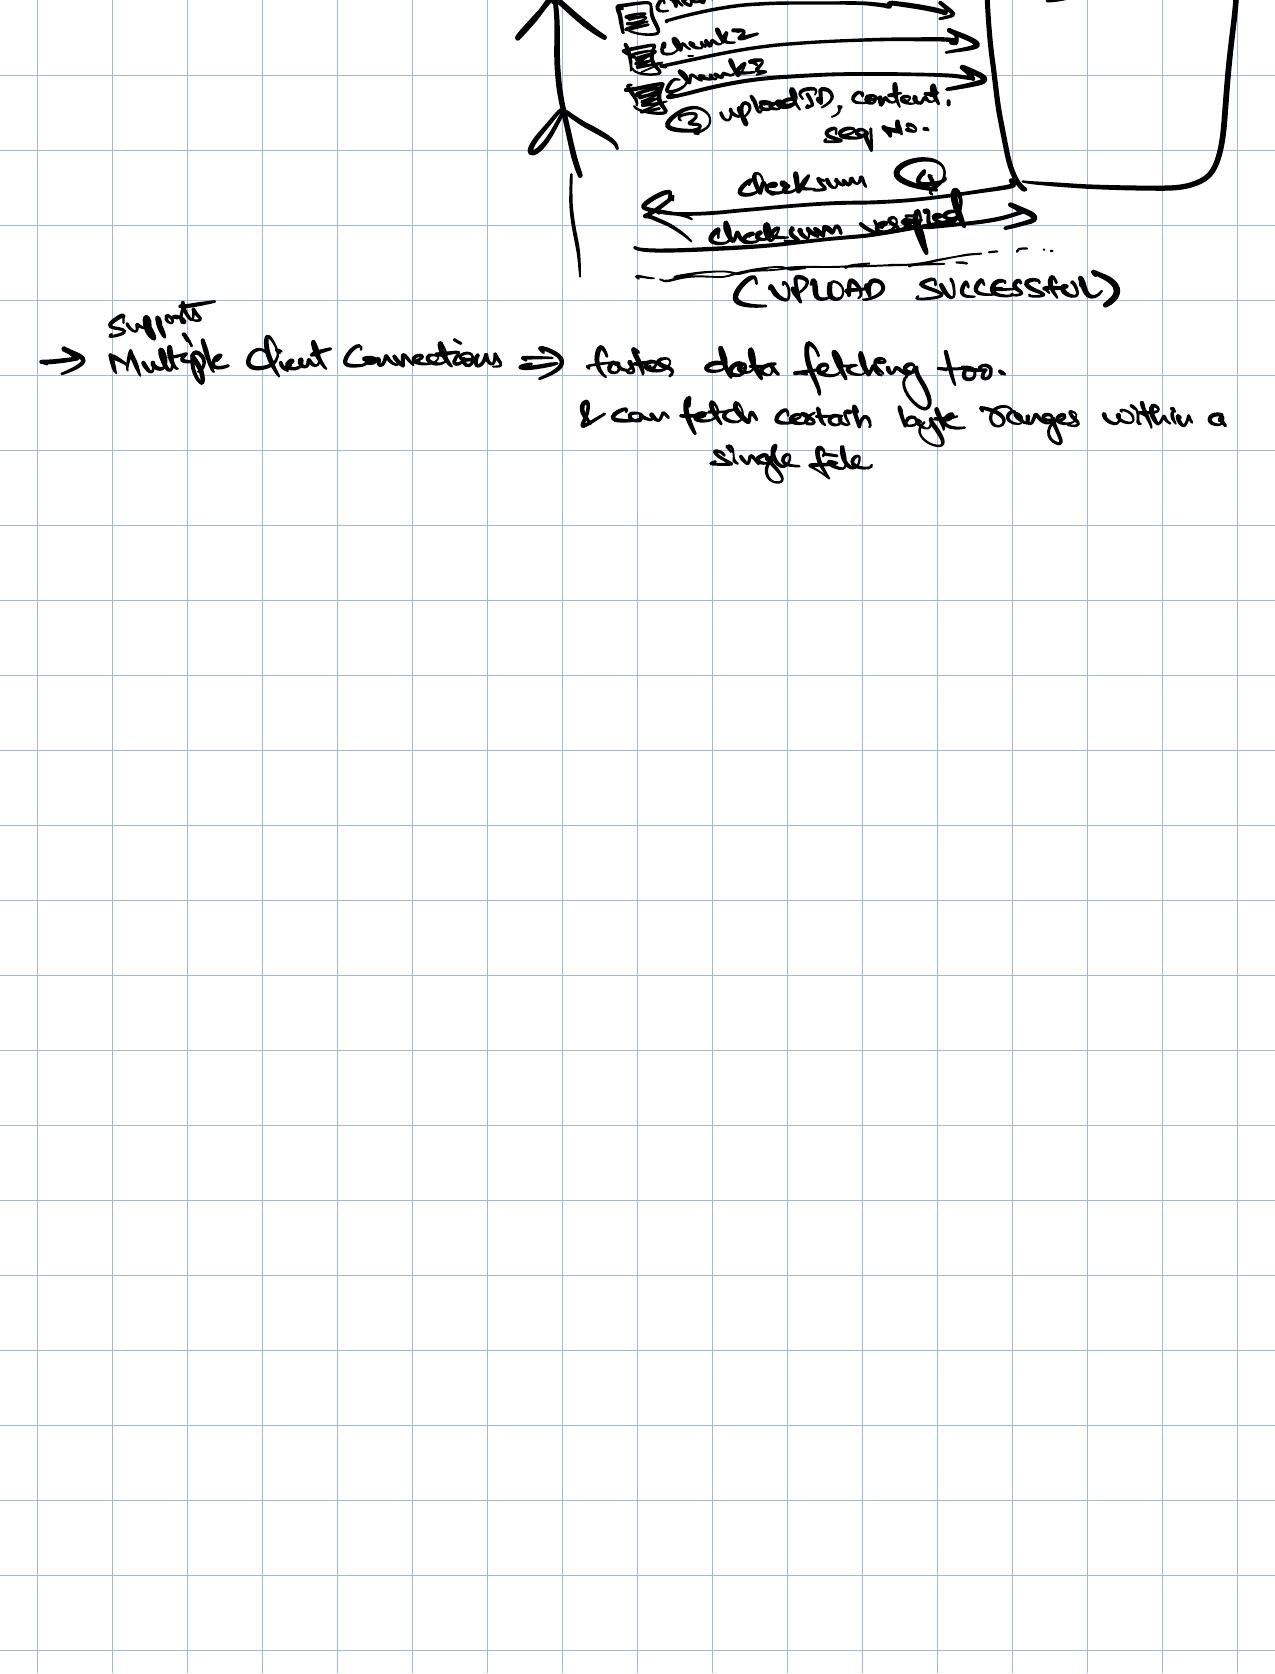 chunk2
chunk3
③ uploadID, content,
seq No.
checksum ④
checksum verified
(UPLOAD SUCCESSFUL)
Supports
→ Multiple Client Connections ⇒ faster data fetching too.
& can fetch certain byte ranges within a
single file